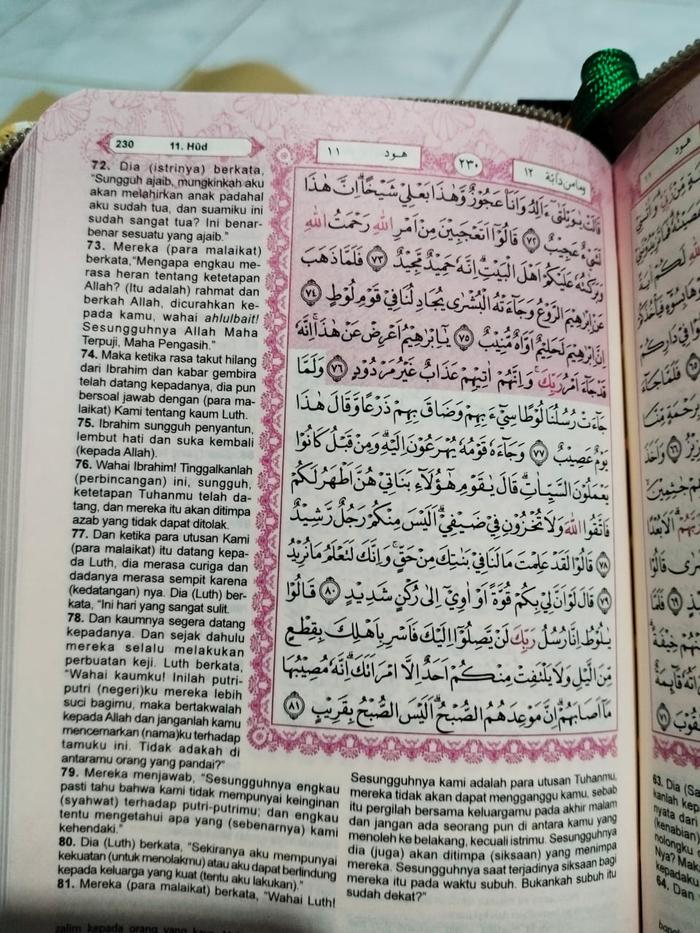 230 11. Hûd
هود ١١
٢٣٠
ومامن دآبة ١٢
72. Dia (istrinya) berkata,
"Sungguh ajaib, mungkinkah aku
akan melahirkan anak padahal
aku sudah tua, dan suamiku ini
sudah sangat tua? Ini benar-
benar sesuatu yang ajaib."
73. Mereka (para malaikat)
berkata,"Mengapa engkau me-
rasa heran tentang ketetapan
Allah? (Itu adalah) rahmat dan
berkah Allah, dicurahkan ke-
pada kamu, wahai ahlulbait!
Sesungguhnya Allah Maha
Terpuji, Maha Pengasih."
74. Maka ketika rasa takut hilang
dari Ibrahim dan kabar gembira
telah datang kepadanya, dia pun
bersoal jawab dengan (para ma-
laikat) Kami tentang kaum Luth.
75. Ibrahim sungguh penyantun,
lembut hati dan suka kembali
(kepada Allah).
76. Wahai Ibrahim! Tinggalkanlah
(perbincangan) ini, sungguh,
ketetapan Tuhanmu telah da-
tang, dan mereka itu akan ditimpa
azab yang tidak dapat ditolak.
77. Dan ketika para utusan Kami
(para malaikat) itu datang kepa-
da Luth, dia merasa curiga dan
dadanya merasa sempit karena
(kedatangan) nya. Dia (Luth) ber-
kata, "Ini hari yang sangat sulit.
78. Dan kaumnya segera datang
kepadanya. Dan sejak dahulu
mereka selalu melakukan
perbuatan keji. Luth berkata,
"Wahai kaumku! Inilah putri-
putri (negeri)ku mereka lebih
suci bagimu, maka bertakwalah
kepada Allah dan janganlah kamu
mencemarkan (nama)ku terhadap
tamuku ini. Tidak adakah di
antaramu orang yang pandai?"
قَالَتْ يٰوَيْلَتٰٓى ءَاَلِدُ وَاَنَا۠ عَجُوْزٌ وَّهٰذَا بَعْلِيْ شَيْخًاۗ اِنَّ هٰذَا
لَشَيْءٌ عَجِيْبٌ ٧٢ قَالُوْٓا اَتَعْجَبِيْنَ مِنْ اَمْرِ اللّٰهِ رَحْمَتُ اللّٰهِ
وَبَرَكٰتُهٗ عَلَيْكُمْ اَهْلَ الْبَيْتِۗ اِنَّهٗ حَمِيْدٌ مَّجِيْدٌ ٧٣ فَلَمَّا ذَهَبَ
عَنْ اِبْرٰهِيْمَ الرَّوْعُ وَجَاۤءَتْهُ الْبُشْرٰى يُجَادِلُنَا فِيْ قَوْمِ لُوْطٍ ٧٤
اِنَّ اِبْرٰهِيْمَ لَحَلِيْمٌ اَوَّاهٌ مُّنِيْبٌ ٧٥ يٰٓاِبْرٰهِيْمُ اَعْرِضْ عَنْ هٰذَاۚ اِنَّهٗ
قَدْ جَاۤءَ اَمْرُ رَبِّكَۚ وَاِنَّهُمْ اٰتِيْهِمْ عَذَابٌ غَيْرُ مَرْدُوْدٍ ٧٦ وَلَمَّا
جَاۤءَتْ رُسُلُنَا لُوْطًا سِيْۤءَ بِهِمْ وَضَاقَ بِهِمْ ذَرْعًا وَّقَالَ هٰذَا
يَوْمٌ عَصِيْبٌ ٧٧ وَجَاۤءَهٗ قَوْمُهٗ يُهْرَعُوْنَ اِلَيْهِۗ وَمِنْ قَبْلُ كَانُوْا
يَعْمَلُوْنَ السَّيِّاٰتِۗ قَالَ يٰقَوْمِ هٰٓؤُلَاۤءِ بَنَاتِيْ هُنَّ اَطْهَرُ لَكُمْ
فَاتَّقُوا اللّٰهَ وَلَا تُخْزُوْنِ فِيْ ضَيْفِيْۗ اَلَيْسَ مِنْكُمْ رَجُلٌ رَّشِيْدٌ
٧٨ قَالُوْا لَقَدْ عَلِمْتَ مَا لَنَا فِيْ بَنٰتِكَ مِنْ حَقٍّۚ وَاِنَّكَ لَتَعْلَمُ مَا نُرِيْدُ
٧٩ قَالَ لَوْ اَنَّ لِيْ بِكُمْ قُوَّةً اَوْ اٰوِيْٓ اِلٰى رُكْنٍ شَدِيْدٍ ٨٠ قَالُوْا
يٰلُوْطُ اِنَّا رُسُلُ رَبِّكَ لَنْ يَّصِلُوْٓا اِلَيْكَ فَاَسْرِ بِاَهْلِكَ بِقِطْعٍ
مِّنَ الَّيْلِ وَلَا يَلْتَفِتْ مِنْكُمْ اَحَدٌ اِلَّا امْرَاَتَكَۗ اِنَّهٗ مُصِيْبُهَا
مَآ اَصَابَهُمْۗ اِنَّ مَوْعِدَهُمُ الصُّبْحُۗ اَلَيْسَ الصُّبْحُ بِقَرِيْبٍ ٨١
79. Mereka menjawab, "Sesungguhnya engkau
pasti tahu bahwa kami tidak mempunyai keinginan
(syahwat) terhadap putri-putrimu; dan engkau
tentu mengetahui apa yang (sebenarnya) kami
kehendaki."
80. Dia (Luth) berkata, "Sekiranya aku mempunyai
kekuatan (untuk menolakmu) atau aku dapat berlindung
kepada keluarga yang kuat (tentu aku lakukan)."
81. Mereka (para malaikat) berkata, "Wahai Luth!
Sesungguhnya kami adalah para utusan Tuhanmu,
mereka tidak akan dapat mengganggu kamu, sebab
itu pergilah bersama keluargamu pada akhir malam
dan jangan ada seorang pun di antara kamu yang
menoleh ke belakang, kecuali istrimu. Sesungguhnya
dia (juga) akan ditimpa (siksaan) yang menimpa
mereka. Sesungguhnya saat terjadinya siksaan bagi
mereka itu pada waktu subuh. Bukankah subuh itu
sudah dekat?"